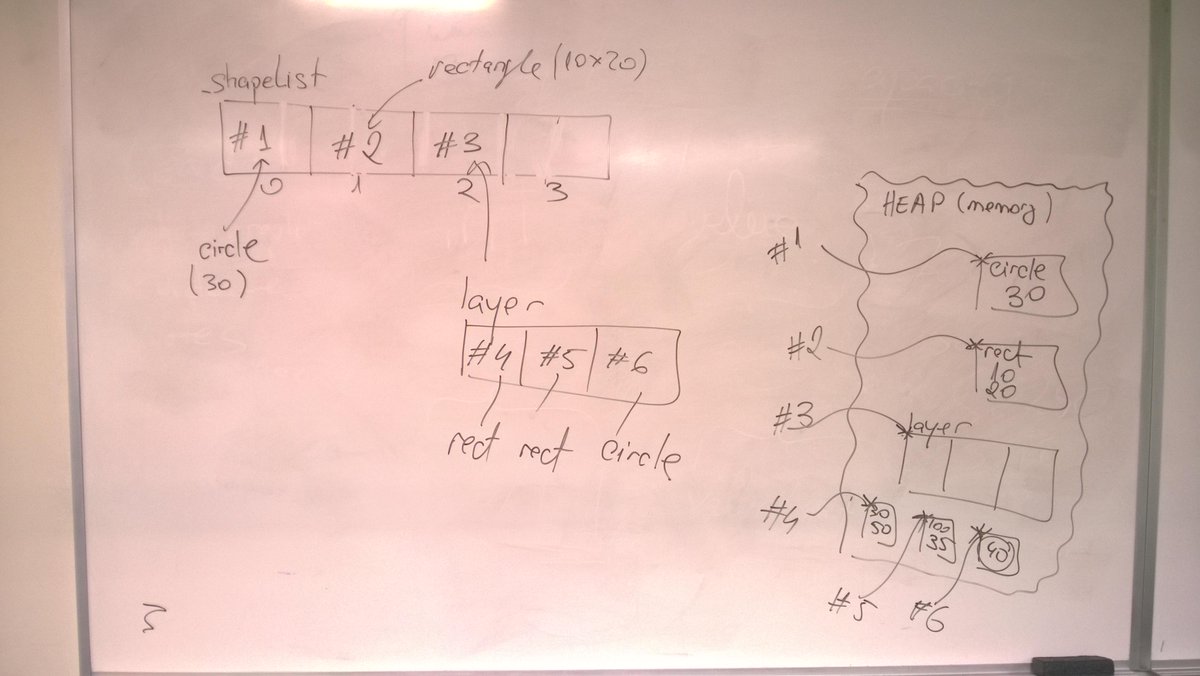 _shapeList
rectangle (10×20)
#1 #2 #3
0 1 2 3
circle
(30)
layer
#4 #5 #6
rect rect circle
HEAP (memory)
#1
circle
30
#2
rect
10
20
#3
layer
#4
30
50
100
35
40
#5 #6